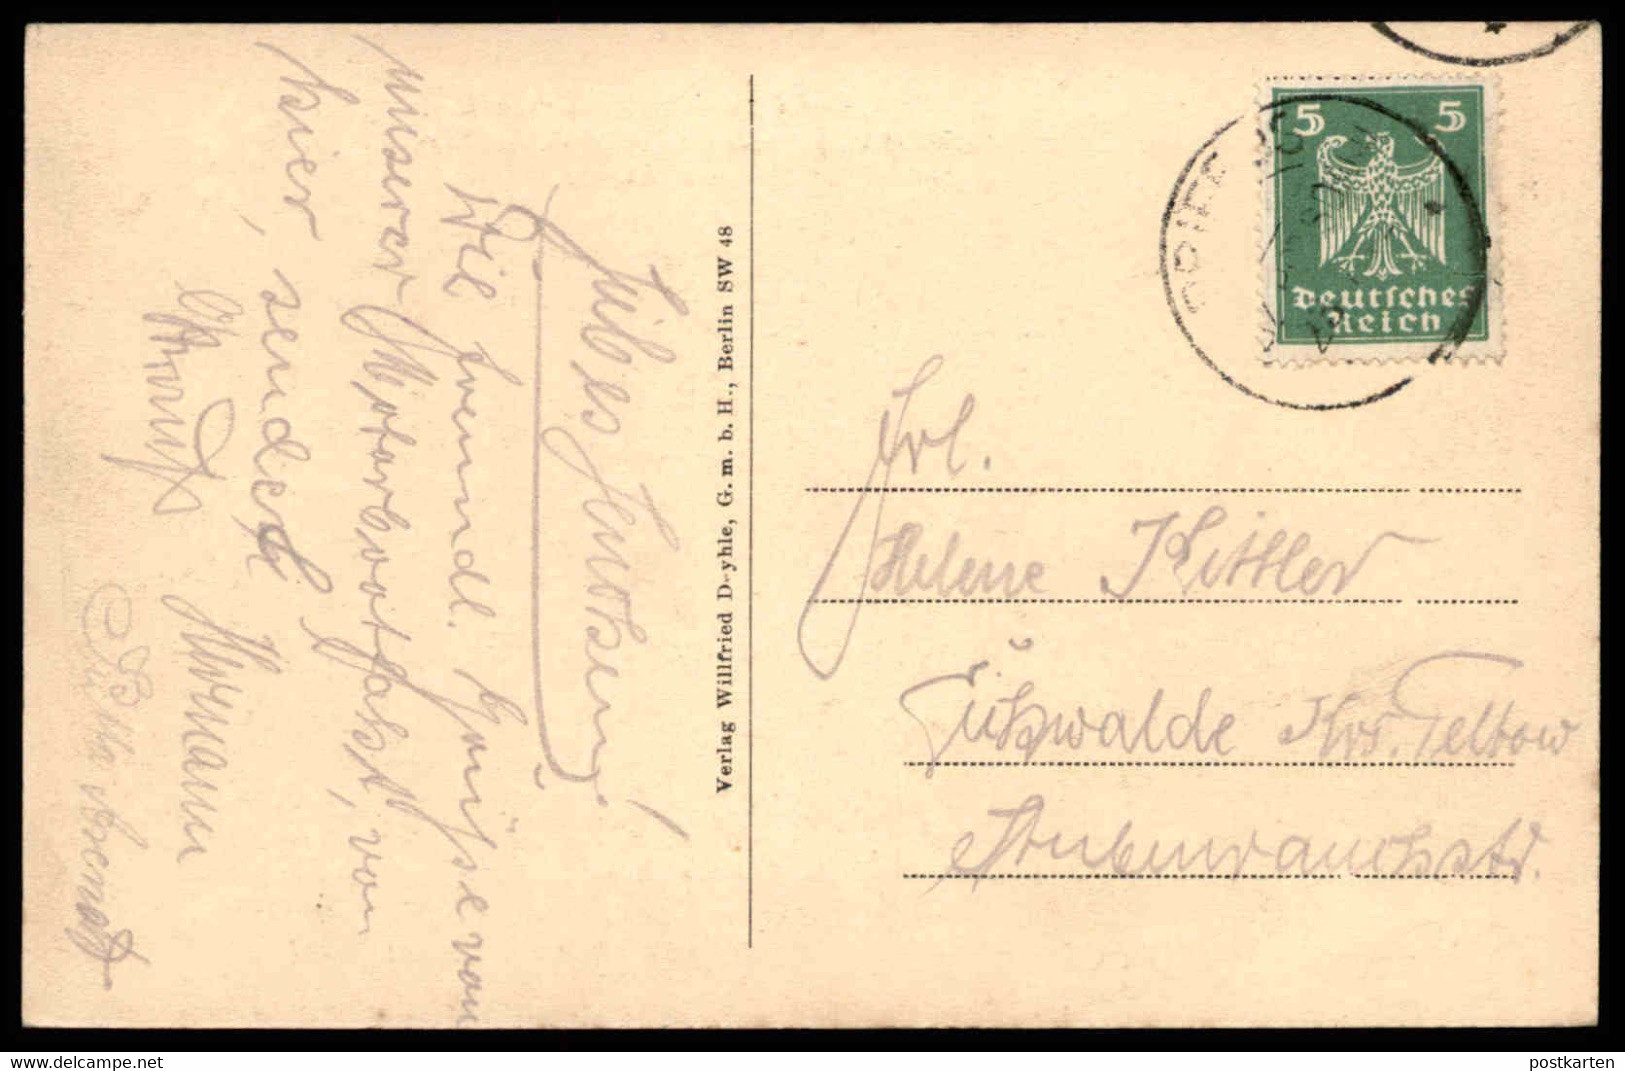 Liebes Lenchen!
Viel freundl. Grüße von
unserer Motorbootfahrt, von
hier, sendet
Horst
Hormann
Verlag Willfried Deyhle, G. m. b. H., Berlin SW 48
5 5
Deutsches
Reich
Frl.
Helene Kittler
Zühswalde Krs. Teltow
Stubenrauchstr.
postkarten